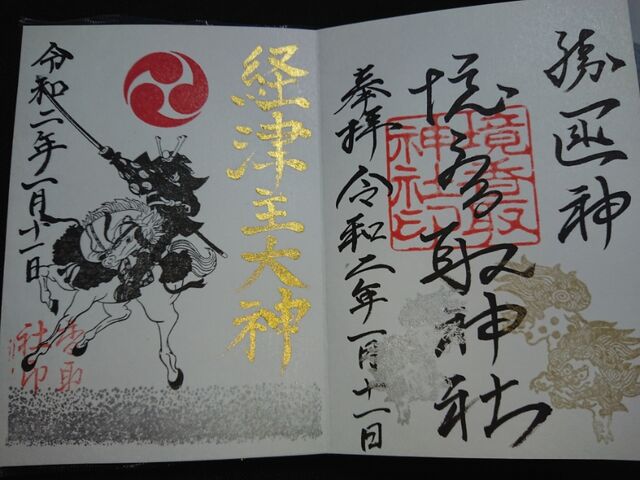 勝運神
境香取神社
境香取
神社印
奉拝 令和二年一月十一日
経津主大神
令和二年一月十一日
香取
社印